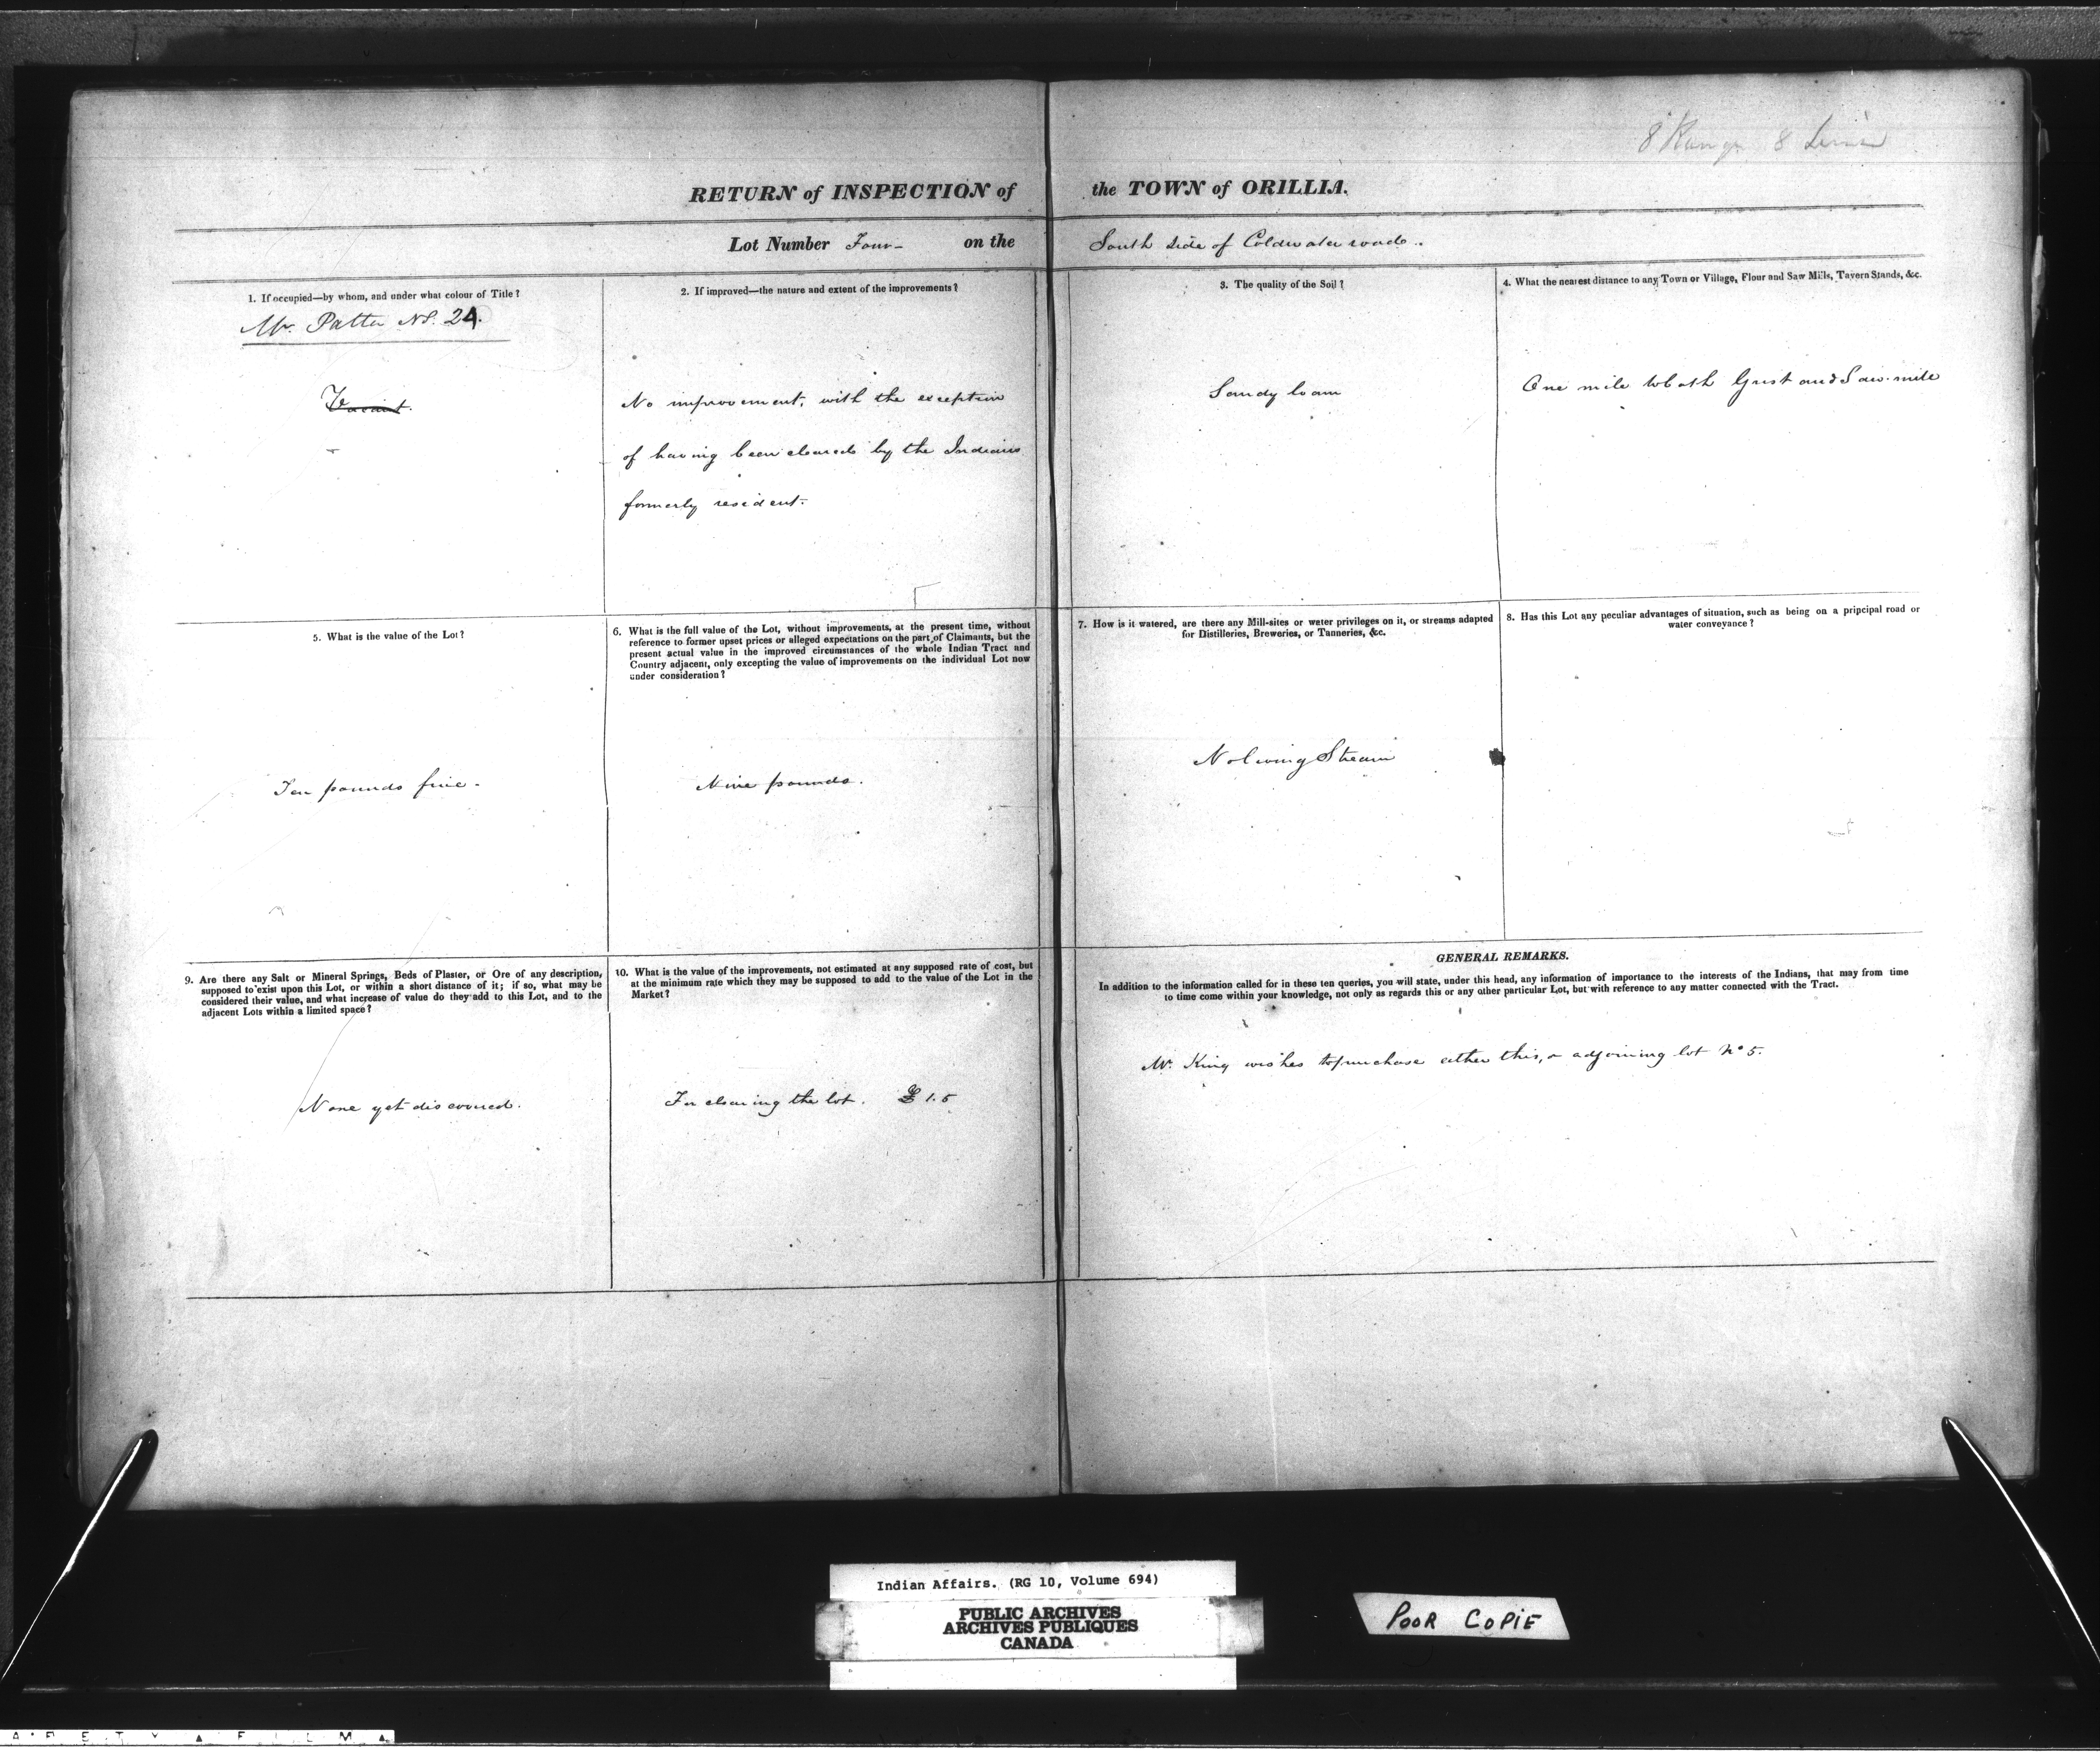 8 Range 8
RETURN of INSPECTION of the TOWN of ORILLIA.
Lot Number Four - on the South side of Coldwater road..
1. If occupied—by whom, and under what colour of Title?
Mr. 24.
Vacant.
2. If improved—the nature and extent of the improvements?
No improvement, with the exception
of having been cleared by the Indians
formerly resident.
3. The quality of the Soil?
Sandy loam
4. What the nearest distance to any Town or Village, Flour and Saw Mills, Tavern Stands, &c.
One mile to both Grist and Saw-mill
5. What is the value of the Lot?
Ten pounds five -
6. What is the full value of the Lot, without improvements, at the present time, without
reference to former upset prices or alleged expectations on the part of Claimants, but the
present actual value in the improved circumstances of the whole Indian Tract and
Country adjacent, only excepting the value of improvements on the individual Lot now
under consideration?
Nine pounds.
7. How is it watered, are there any Mill-sites or water privileges on it, or streams adapted
for Distilleries, Breweries, or Tanneries, &c.
No living Stream
8. Has this Lot any peculiar advantages of situation, such as being on a principal road or
water conveyance?
9. Are there any Salt or Mineral Springs, Beds of Plaster, or Ore of any description,
supposed to exist upon this Lot, or within a short distance of it; if so, what may be
considered their value, and what increase of value do they add to this Lot, and to the
adjacent Lots within a limited space?
None yet discovered.
10. What is the value of the improvements, not estimated at any supposed rate of cost, but
at the minimum rate which they may be supposed to add to the value of the Lot in the
Market?
For clearing the lot. £ 1.5
GENERAL REMARKS.
In addition to the information called for in these ten queries, you will state, under this head, any information of importance to the interests of the Indians, that may from time
to time come within your knowledge, not only as regards this or any other particular Lot, but with reference to any matter connected with the Tract.
Mr. King wishes to purchase either this, or adjoining lot No 5.
Indian Affairs. (RG 10, Volume 694)
PUBLIC ARCHIVES
ARCHIVES PUBLIQUES
CANADA
POOR COPIE
F E T Y ▲ F I L M ▲